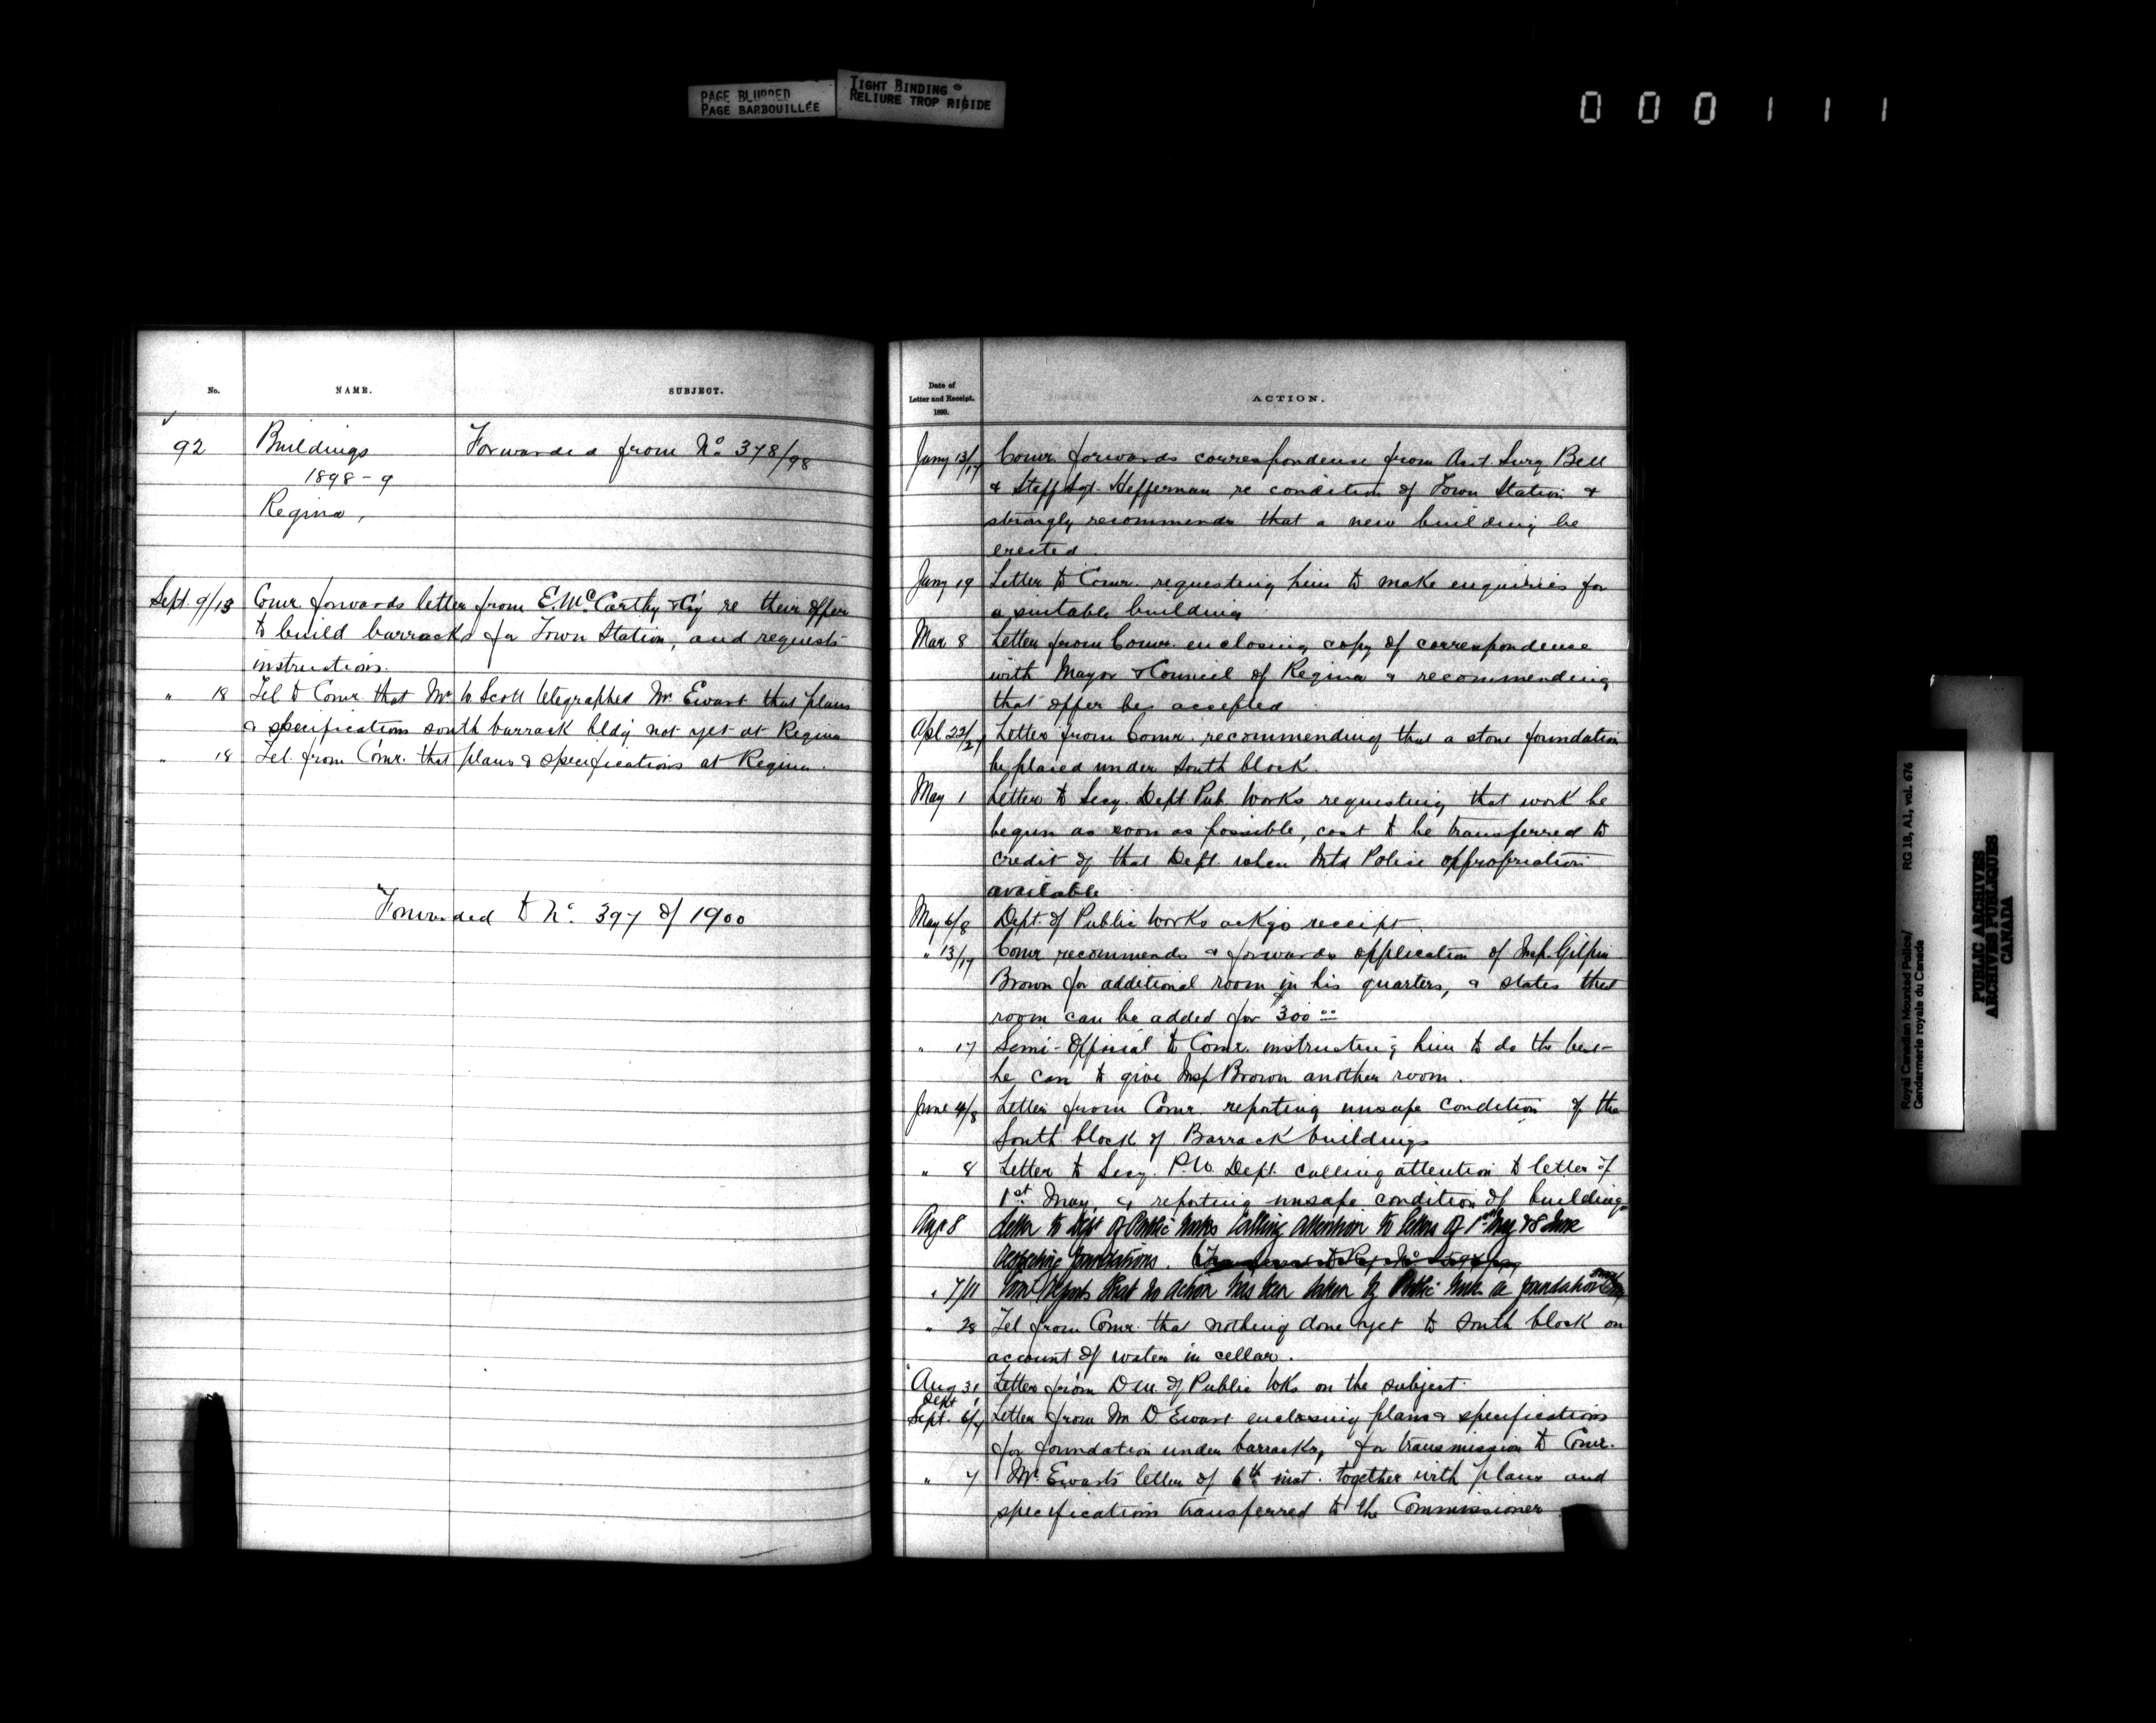 PAGE BLURRED
PAGE BARBOUILLÉE
TIGHT BINDING
RELIURE TROP RIGIDE
000111
No.
NAME.
SUBJECT.
92
Buildings
Forwarded from No. 378/98
1898-9
Regina,
Sept. 9/13 Comr. forwards letter from E. McCarthy & Co'y re their offer
to build barracks for Town Station, and requests
instructions.
" 18 Tel to Comr. that Mr. W Scott telegraphed Mr. Ewart that plans
& specifications south barrack bldg not yet at Regina
" 18 Tel. from Comr. that plans & specifications at Regina.
Forwarded to No. 397 of 1900
Date of
Letter and Receipt.
1899.
ACTION.
Jany 13/17 Comr. forwards correspondence from Asst. Surg Bell
& Staff Sgt. Heffernan re condition of Town Station &
strongly recommends that a new building be
erected.
Jany 19 Letter to Comr. requesting him to make enquiries for
a suitable building
Mar 8 Letter from Comr. enclosing copy of correspondence
with Mayor & Council of Regina & recommending
that offer be accepted
Apl 22/27 Letter from Comr. recommending that a stone foundation
be placed under South block.
May 1 Letter to Secy. Dept. Pub. Works requesting that work be
begun as soon as possible, cost to be transferred to
credit of that Dept. when Mtd Police appropriation
available
May 6/8 Dept. of Public Works ackgs receipt.
" 13/17 Comr recommends & forwards application of Insp. Gilpin
Brown for additional room in his quarters, & states that
room can be added for 300.00
" 17 Semi-Official to Comr. instructing him to do the best
he can to give Insp Brown another room.
June 4/8 Letter from Comr reporting unsafe condition of the
South block of Barrack buildings
" 8 Letter to Secy. P.W. Dept. calling attention to letter of
1st May, & reporting unsafe condition of building
Aug 8 Letter to Dept of Public Works calling attention to letters of 1st May & 8 June
respecting foundations.
" 7/11 Comr reports that no action has been taken by Public Works re foundation
" 28 Tel from Comr. that nothing done yet to South block on
account of water in cellar.
Aug 31 Letter from D.M. of Public Wks on the subject.
Sept 1
Sept. 6/7 Letter from Mr D Ewart enclosing plans & specifications
for foundation under barracks, for transmission to Comr.
" 7 Mr. Ewart's letter of 6th inst. together with plans and
specification transferred to the Commissioner.
Royal Canadian Mounted Police/
Gendarmerie royale du Canada
RG 18, A1, vol. 676
PUBLIC ARCHIVES
ARCHIVES PUBLIQUES
CANADA